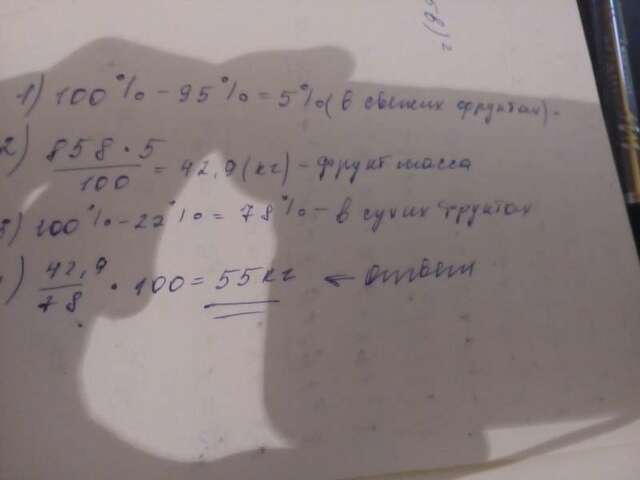 1) 100% - 95% = 5% (в свежих фруктах).
2) 858 · 5 / 100 = 42,9 (кг) - фрукт масса
3) 100% - 22% = 78% - в сухих фруктах
) 42,9 / 78 · 100 = 55 кг ← ответ